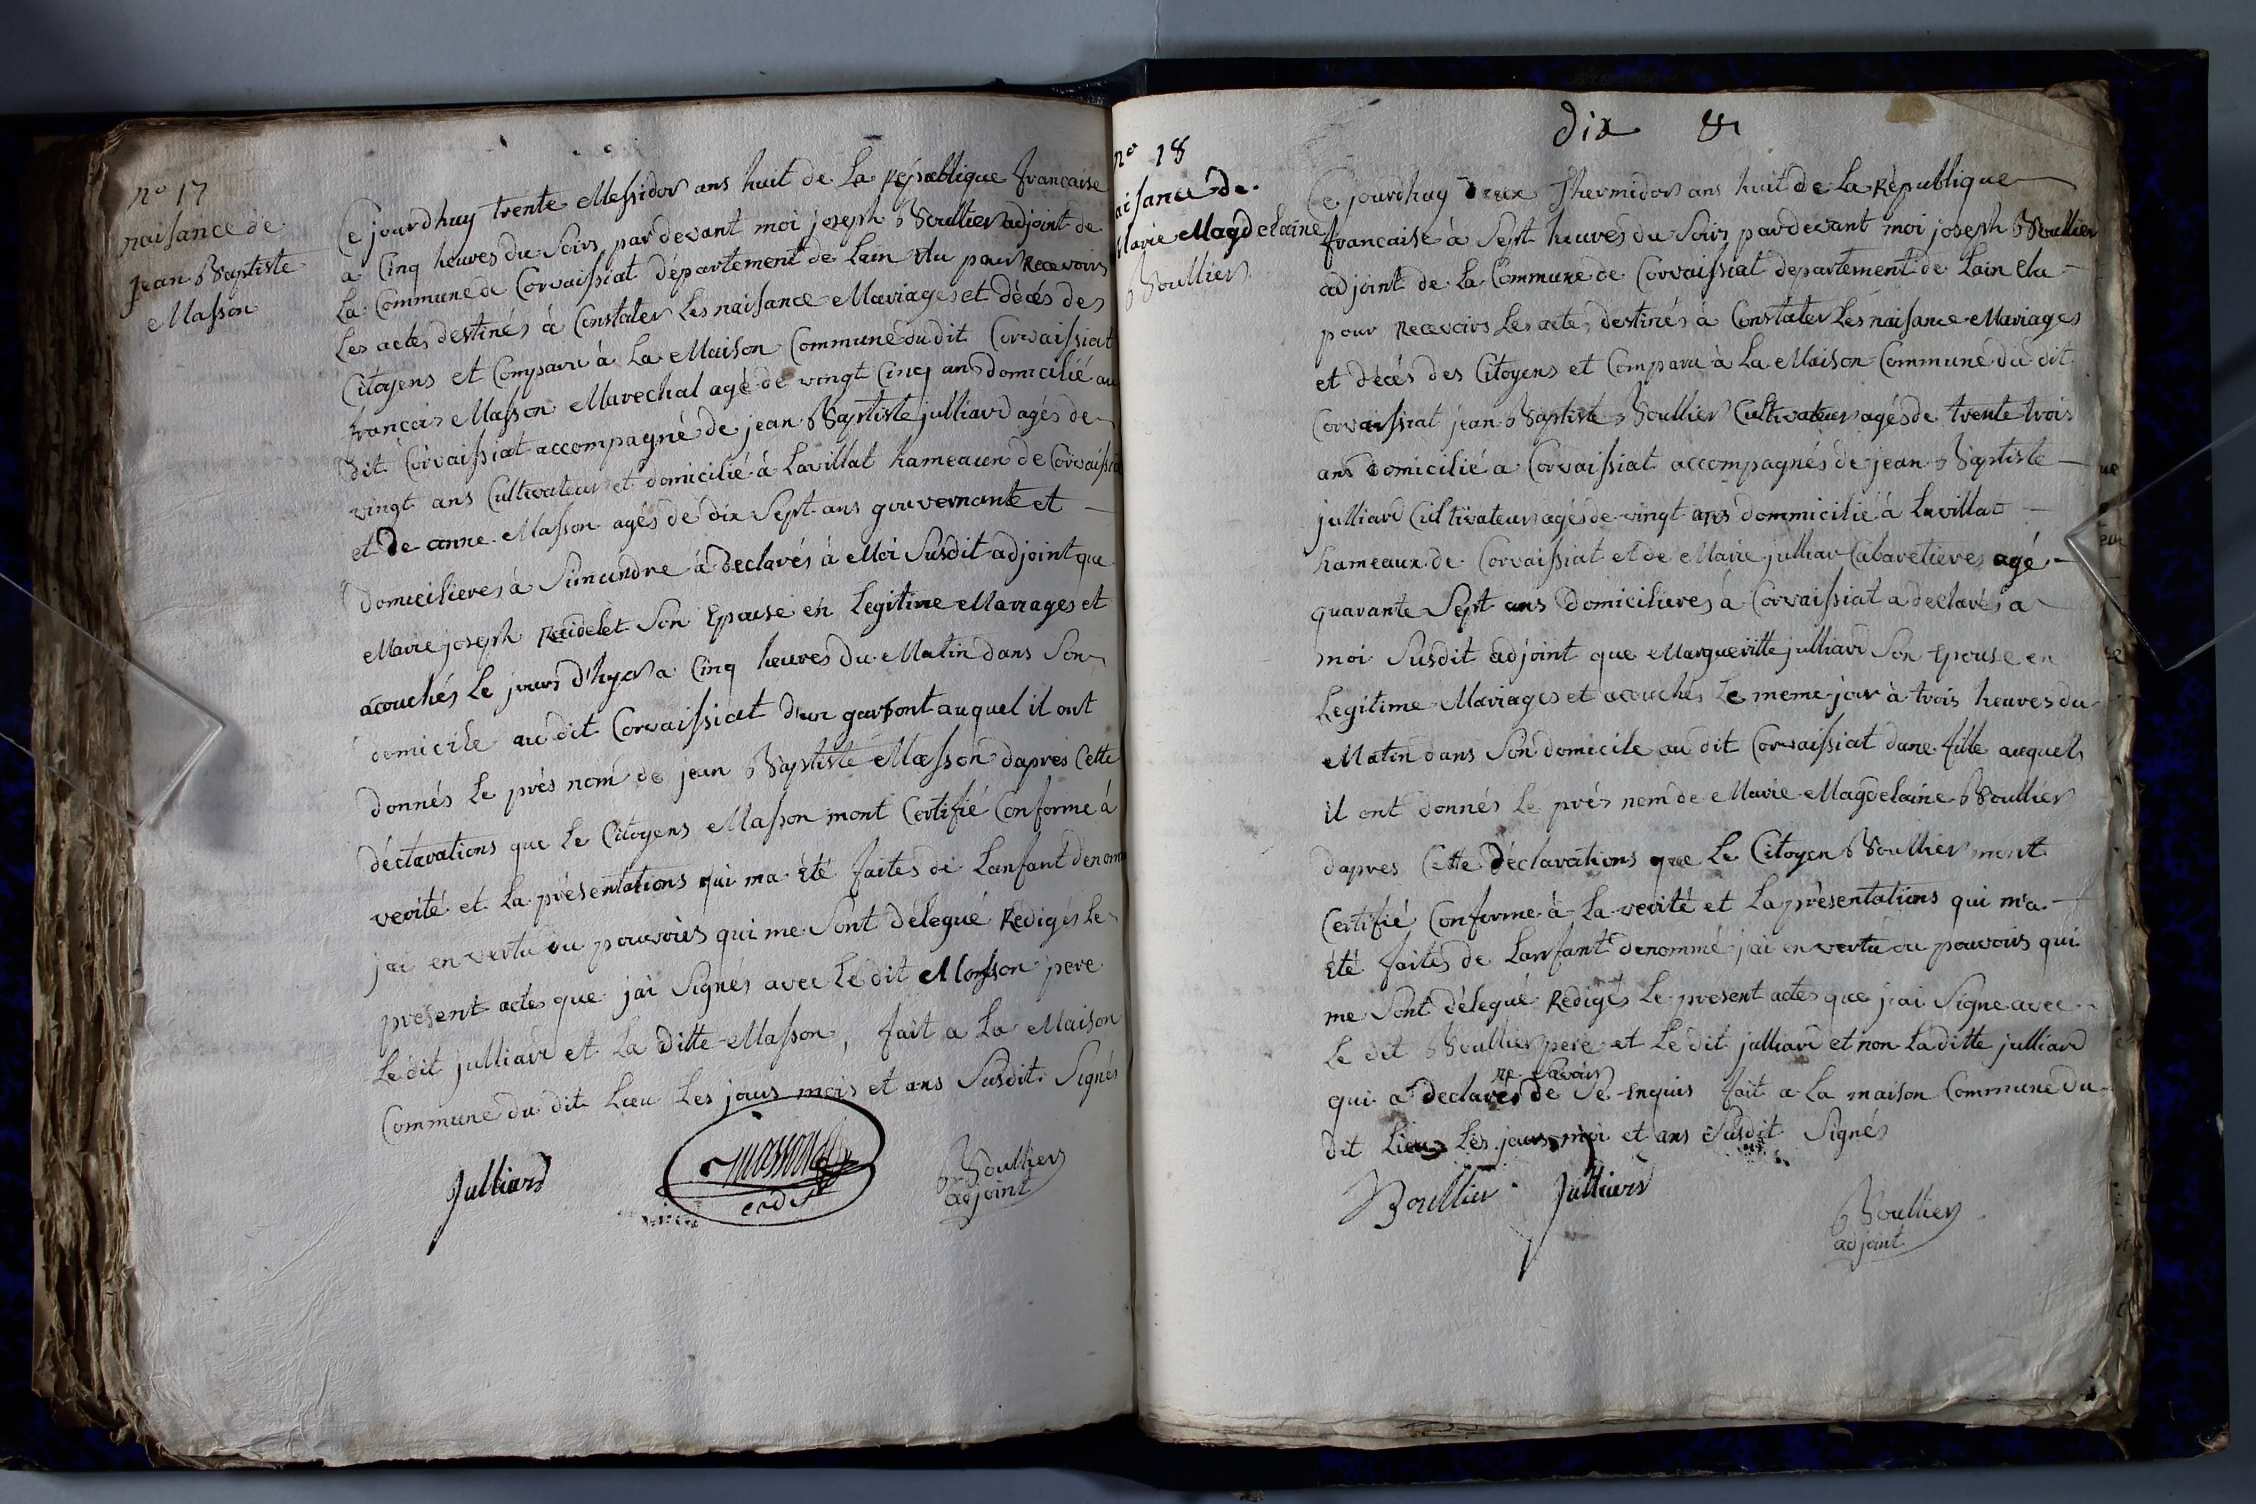 n° 17
naisance de
jean Baptiste
Masson
Ce jourdhuy trente Messidor ans huit de La République francaise
a Cinq heures du Soirs par devant moi joseph Boullier adjoint de
La Commune de Corvaissiat département de Lain élu pour Recevoirs
Les actes destinés à Constater Les naisance Mariages et décés des
Citoyens et Comparu à La Maison Commune du dit Corvaissiat
francois Masson Marechal agé de vingt Cinq ans domicilié au
dit Corvaissiat accompagné de jean Baptiste julliard agés de
vingt ans Cultivateur et domicilié à Lavillat hameaun de Corvaissiat
et De anne Masson agés de dix Sept ans gouvernante et
domicilieres à Simandre à Declarés à Moi Susdit adjoint que
Marie joseph Son Epouse en Legitime Mariages et
acouchés Le jours d'hyer a Cinq heures du Matin dans Son
domicile au dit Corvaissiat d'un garsont auquel il ont
donnés Le prés nom de jean Baptiste Masson dapres Cette
déclarations que Le Citoyens Masson mont Certifié Conforme á
verité et La présentations qui ma été faites de Lanfant denommé
jai en vertu du pouvoirs qui me Sont délegué Redigés Le
present actes que jai Signés avec Le dit Masson pere
Le dit julliard et La ditte Masson, fait a La Maison
Commune du dit Lieu Les jours mois et ans Susdit Signés
Julliard
masson
Boullier
adjoint
dix
n° 18
aisance de
Marie Magdelaine
Boullier
Ce jourdhuy Deux Thermidor ans huit de La République
francaise à Sept heures du Soirs pardevant moi joseph Boullier
adjoint de La Commune de Corvaissiat departement de Lain élu
pour Recevoirs Les actes destinés à Constater Les naisance Mariages
et décés des Citoyens et Comparu à La Maison Commune du dit
Corvaissiat jean Baptiste Boullier Cultivateur agés de trente trois
ans Domicilié a Corvaissiat accompagnés de jean Baptiste
julliard Cultivateur agés de vingt ans dommicilié á Lavillat
hameaux de Corvaissiat et de Marie julliar Cabaretieres agé
quarante Sept ans Domicilieres à Corvaissiat a declarés a
moi Susdit adjoint que Margueritte julliard Son Epouse en
Legitime Mariages et acouchés Le meme jour à trois heures du
Matin dans Son domicile au dit Corvaissiat dune fille auquel
il ont donnés Le prés nom de Marie Magdelaine Boullier
dapres Cette déclarations que Le Citoyen Boullier mont
Certifié Conforme à La verité et La présentations qui m'a
été faites de Lanfant denommé jai en vertu du pouvoirs qui
me Sont délegué Redigés Le present actes que jai Signe avec
Le dit Boullier pere et Le dit julliard et non La ditte julliard
ne Savoir
qui a declarés de Se Enquis fait a La maison Commune du
dit Lieu Les jours moi et ans Susdit Signés
Boullier
Julliard
Boullier
adjoint